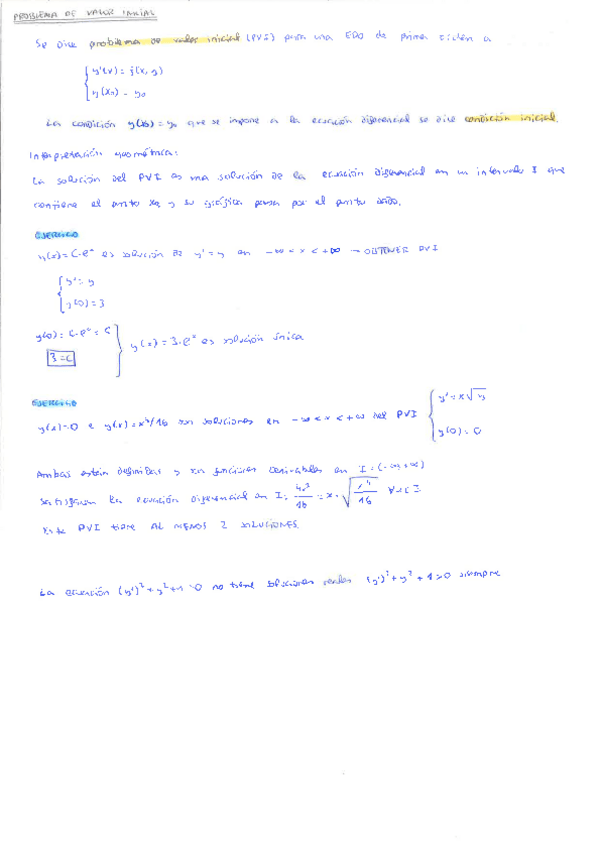 PROBLEMA DE VALOR INICIAL
Se dice problema de valor inicial (PVI) para una EDO de primer orden a
{ y'(x) = f(x, y)
y(x₀) = y₀
La condición y(x₀) = y₀ que se impone a la ecuación diferencial se dice condición inicial.
Interpretación geométrica:
La solución del PVI es una solución de la ecuación diferencial en un intervalo I que
contiene el punto x₀ y su gráfica pasa por el punto dado.
EJERCICIO
y(x) = C·eˣ es solución de y' = y en -∞ < x < +∞ → OBTENER PVI
{ y' = y
y(0) = 3
y(0) = C·e⁰ = C
3 = C } y(x) = 3·eˣ es solución única
EJERCICIO
y(x) = 0 e y(x) = x⁴/16 son soluciones en -∞ < x < +∞ del PVI { y' = x√y
y(0) = 0
Ambas están definidas y son funciones derivables en I = (-∞, +∞)
satisfacen la ecuación diferencial en I: 4x³/16 = x·√(x⁴/16) ∀x∈I
Este PVI tiene AL MENOS 2 SOLUCIONES
La ecuación (y')² + y² + 1 = 0 no tiene soluciones reales (y')² + y² + 1 > 0 siempre